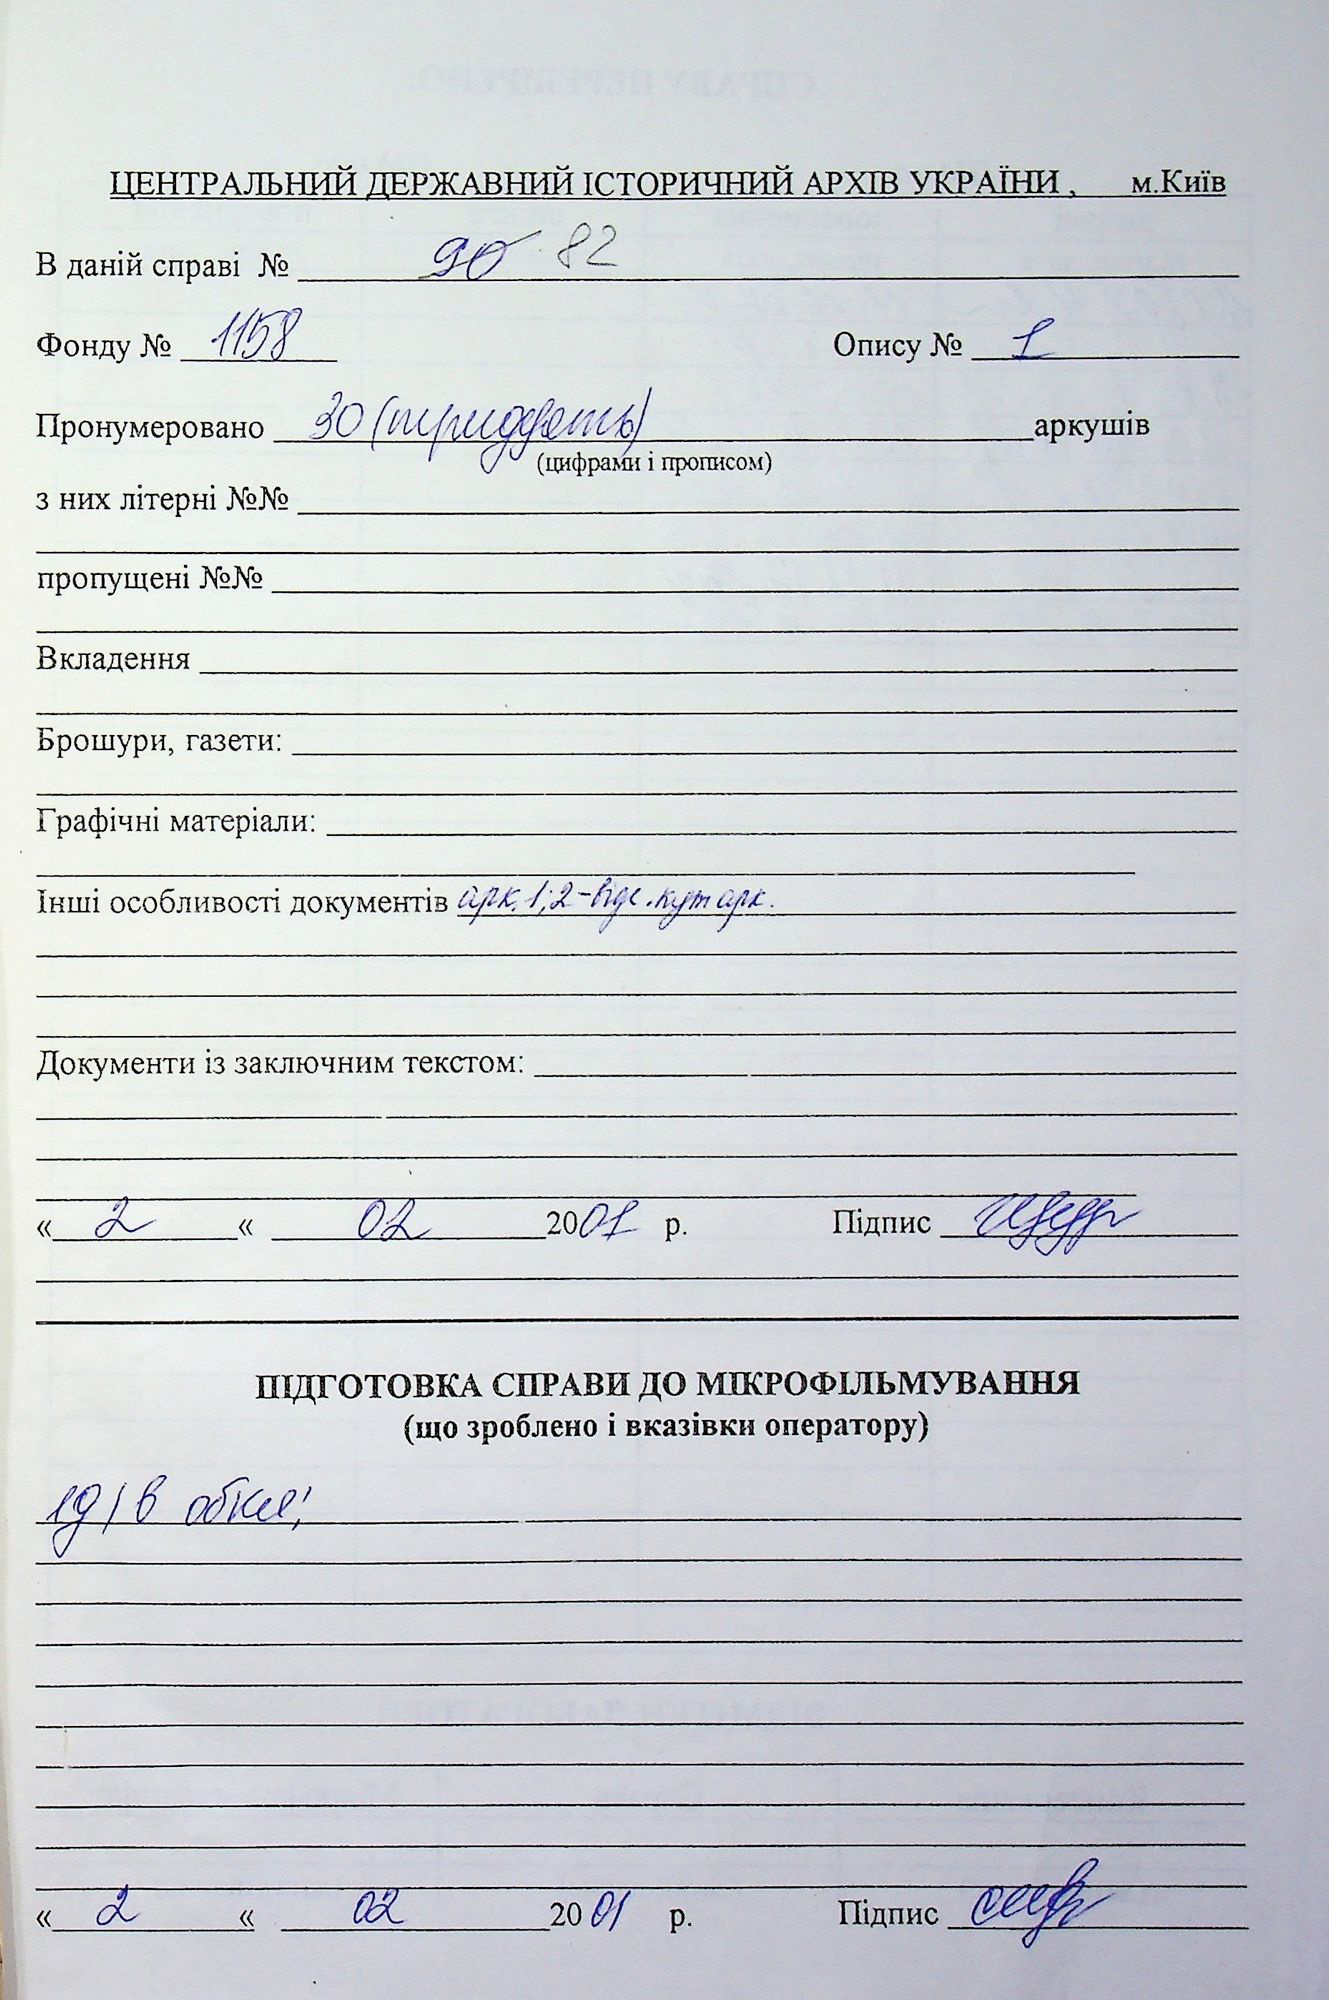 ЦЕНТРАЛЬНИЙ ДЕРЖАВНИЙ ІСТОРИЧНИЙ АРХІВ УКРАЇНИ , м.Київ
В даній справі № 90 82
Фонду № 1158 Опису № 1
Пронумеровано 30 (тридцять) аркушів
(цифрами і прописом)
з них літерні №№
пропущені №№
Вкладення
Брошури, газети:
Графічні матеріали:
Інші особливості документів арк. 1; 2 - відс. кут арк.
Документи із заключним текстом:
« 2 « 02 2001 р. Підпис
ПІДГОТОВКА СПРАВИ ДО МІКРОФІЛЬМУВАННЯ
(що зроблено і вказівки оператору)
в обкл;
« 2 « 02 2001 р. Підпис